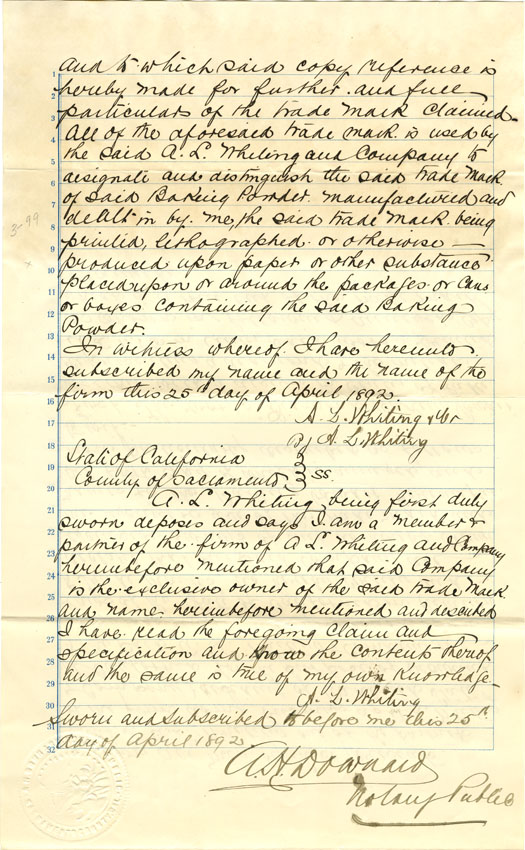 and to which said copy reference is
hereby made for further and full
particulars of the trade mark claimed.
All of the aforesaid trade mark is used by
the said A. L. Whiting and Company to
designate and distinguish the said trade mark
of said Baking Powder manufactured and
dealt in by me, the said trade mark being
printed, lithographed or otherwise —
produced upon paper or other substance
placed upon or around the packages or Cans
or boxes containing the said Baking
Powder.
In witness whereof I have hereunto
subscribed my name and the name of the
firm this 25th day of April 1892.
A. L. Whiting & Co
By A. L. Whiting
State of California
County of Sacramento ss.
A. L. Whiting, being first duly
sworn deposes and says I am a member &
partner of the firm of A L. Whiting and Company
hereinbefore mentioned that said Company
is the exclusive owner of the said trade mark
and name hereinbefore mentioned and described
I have read the foregoing Claim and
specification and know the contents thereof
and the same is true of my own knowledge
A. L. Whiting
Sworn and subscribed to before me this 25th
day of April 1892
A H Downard
Notary Public
3-99
1
2
3
4
5
6
7
8
9
10
11
12
13
14
15
16
17
18
19
20
21
22
23
24
25
26
27
28
29
30
31
32